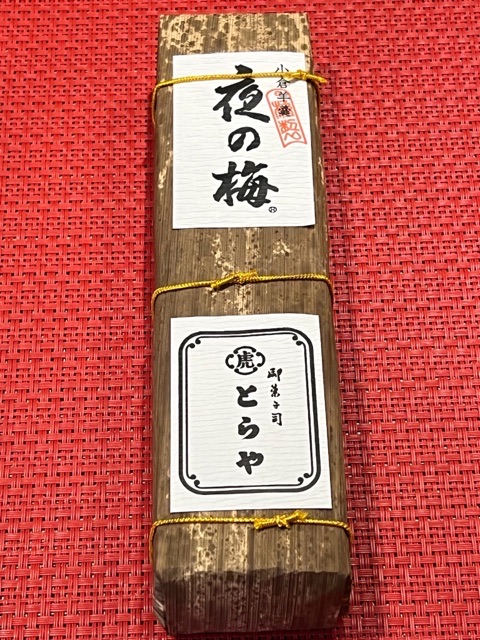 小倉羊羹
夜の梅
®
虎
御菓子司
とらや